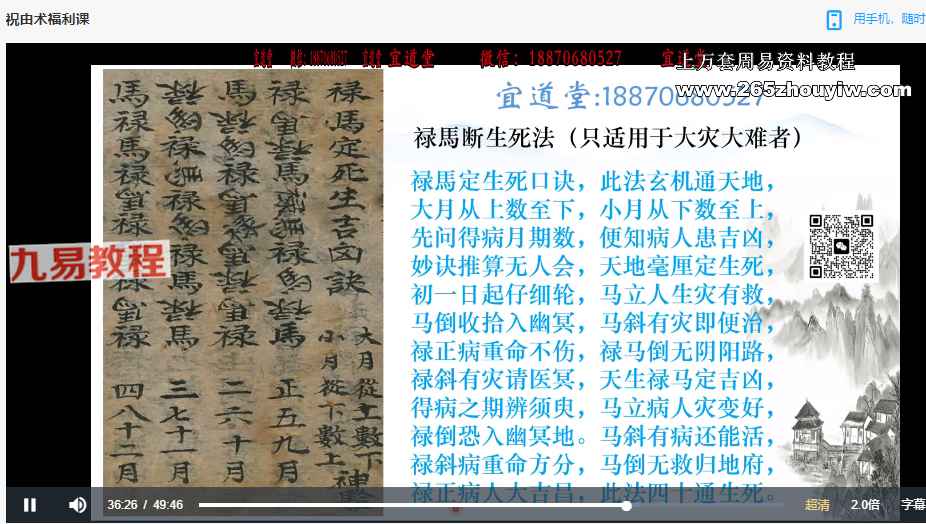 祝由术福利课
用手机，随时
宜道堂 微信：18870680527 宜道堂 宜道堂 微信：18870680527 宜道堂
上万套周易资料教程
www.265zhouyiw.com
宜道堂:18870680527
禄馬断生死法（只适用于大灾大难者）
禄馬定生死口诀，此法玄机通天地，
大月从上数至下，小月从下数至上，
先问得病月期数，便知病人患吉凶，
妙诀推算无人会，天地毫厘定生死，
初一日起仔细轮，马立人生灾有救，
马倒收拾入幽冥，马斜有灾即便治，
禄正病重命不伤，禄马倒无阴阳路，
禄斜有灾请医冥，天生禄马定吉凶，
得病之期辨须臾，马立病人灾变好，
禄倒恐入幽冥地。马斜有病还能活，
禄斜病重命方分，马倒无救归地府，
禄正病人大吉昌，此法四十通生死。
九易教程
禄馬定死生吉凶訣
大月從上數下
小月從下數上
禄馬禄馬禄馬
正五九月
馬禄馬禄禄
二六十月
禄禄馬禄馬
三七十一月
馬禄馬禄禄禄
四八十二月
36:26 / 49:46
超清
2.0倍
字幕